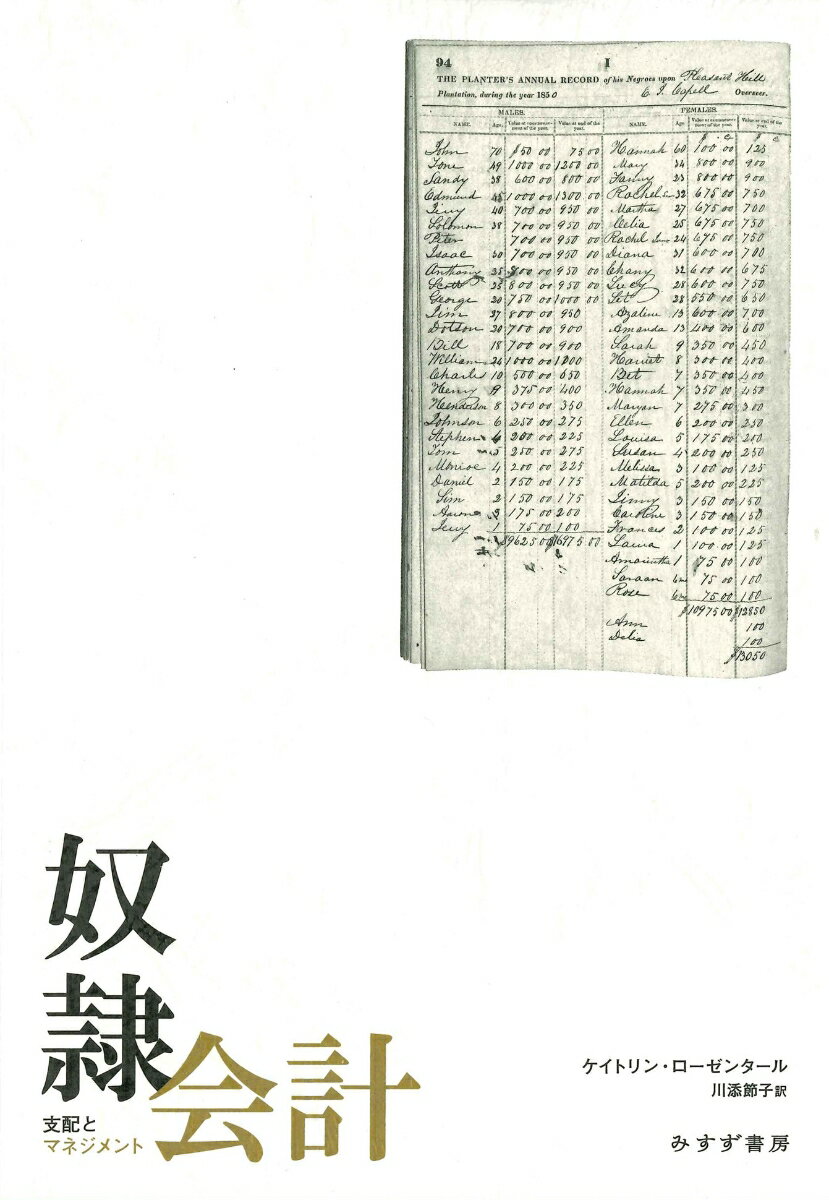 94 I
THE PLANTER'S ANNUAL RECORD of his Negroes upon Pleasant Hill
Plantation, during the year 1850 E. J. Capell Overseer.
MALES. FEMALES.
NAME. Age. Value at commencement of the year. Value at end of the year. NAME. Age Value at commencement of the year. Value at end of the year.
John 70 $50 00 75 00 Hannah 60 100 00 125
Tone 49 1000 00 1200 00 Mary 34 800 00 900
Sandy 38 600 00 800 00 Fanny 23 800 00 900
Edmund 1000 00 1300 00 Rachel 32 675 00 750
40 700 00 950 00 Martha 27 675 00 700
Solomon 38 700 00 950 00 Celia 25 675 00 750
Peter 700 00 950 00 Rachel 24 675 00 750
Isaac 30 700 00 950 00 Diana 31 600 00 700
Anthony 35 800 00 950 00 Chany 32 600 00 675
Scott 25 800 00 950 00 Lucy 28 600 00 750
George 20 750 00 1000 00 28 550 00 650
Jim 27 800 00 950 Azaline 13 600 00 700
Dotson 20 700 00 900 Amanda 13 400 00 600
Bill 18 700 00 900 Sarah 9 350 00 450
William 1000 00 Harriet 8 300 00 400
Charles 10 500 00 650 Bet 7 350 00 400
Henry 9 375 00 400 Hannah 7 350 00 450
Henderson 8 300 00 350 Maryan 7 275 00 300
Johnson 6 250 00 275 Ellen 6 200 00 250
Stephen 200 00 225 Louisa 5 175 00 200
Tom 5 250 00 275 Susan 4 200 00 250
Monroe 4 200 00 225 Melissa 3 100 00 125
Daniel 2 150 00 175 Matilda 5 200 00 225
Sim 2 150 00 175 Jinny 3 150 00 150
Aaron 175 00 200 Caroline 3 150 00 150
1 75 00 100 Frances 2 100 00 125
16975 00 Laura 1 100 00 125
1 75 00 100
75 00 100
Rose 75 00 100
$10975 00 $12850
Ann 100
Delia 100
$13050
奴隷会計
支配と
マネジメント
ケイトリン・ローゼンタール
川添節子 訳
みすず書房